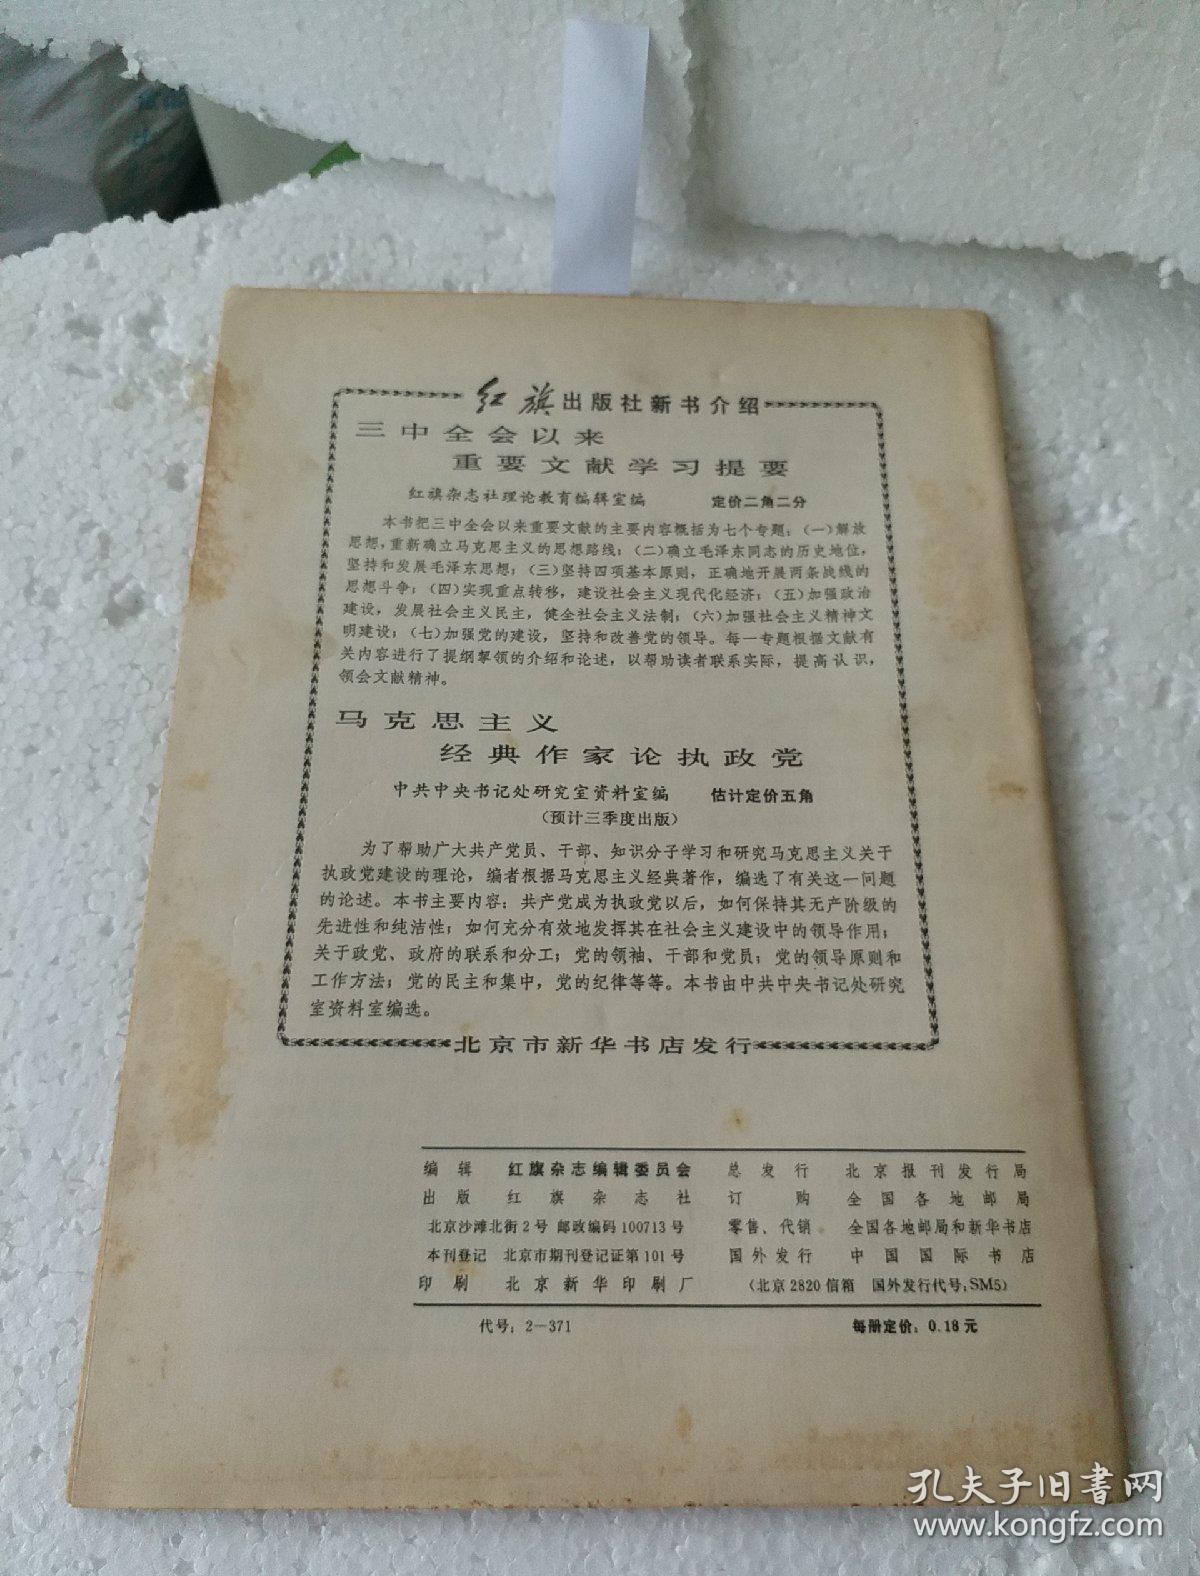 红旗出版社新书介绍
三中全会以来
重要文献学习提要
红旗杂志社理论教育编辑室编 定价二角二分
本书把三中全会以来重要文献的主要内容概括为七个专题：(一)解放
思想，重新确立马克思主义的思想路线；(二)确立毛泽东同志的历史地位，
坚持和发展毛泽东思想；(三)坚持四项基本原则，正确地开展两条战线的
思想斗争；(四)实现重点转移，建设社会主义现代化经济；(五)加强政治
建设，发展社会主义民主，健全社会主义法制；(六)加强社会主义精神文
明建设；(七)加强党的建设，坚持和改善党的领导。每一专题根据文献有
关内容进行了提纲挈领的介绍和论述，以帮助读者联系实际，提高认识，
领会文献精神。
马克思主义
经典作家论执政党
中共中央书记处研究室资料室编 估计定价五角
(预计三季度出版)
为了帮助广大共产党员、干部、知识分子学习和研究马克思主义关于
执政党建设的理论，编者根据马克思主义经典著作，编选了有关这一问题
的论述。本书主要内容：共产党成为执政党以后，如何保持其无产阶级的
先进性和纯洁性；如何充分有效地发挥其在社会主义建设中的领导作用；
关于政党、政府的联系和分工；党的领袖、干部和党员；党的领导原则和
工作方法；党的民主和集中，党的纪律等等。本书由中共中央书记处研究
室资料室编选。
北京市新华书店发行
编辑 红旗杂志编辑委员会 总发行 北京报刊发行局
出版 红旗杂志社 订购 全国各地邮局
北京沙滩北街2号 邮政编码100713号 零售、代销 全国各地邮局和新华书店
本刊登记 北京市期刊登记证第101号 国外发行 中国国际书店
印刷 北京新华印刷厂 (北京2820信箱 国外发行代号：SM5)
代号：2—371 每册定价：0.18元
孔夫子旧书网
www.kongfz.com